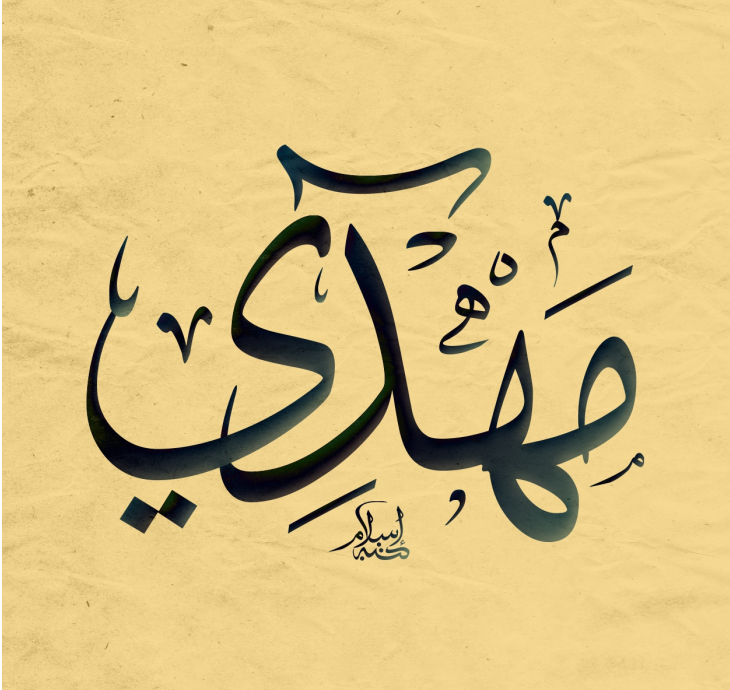 مَهْدِي
كتبه إسلام